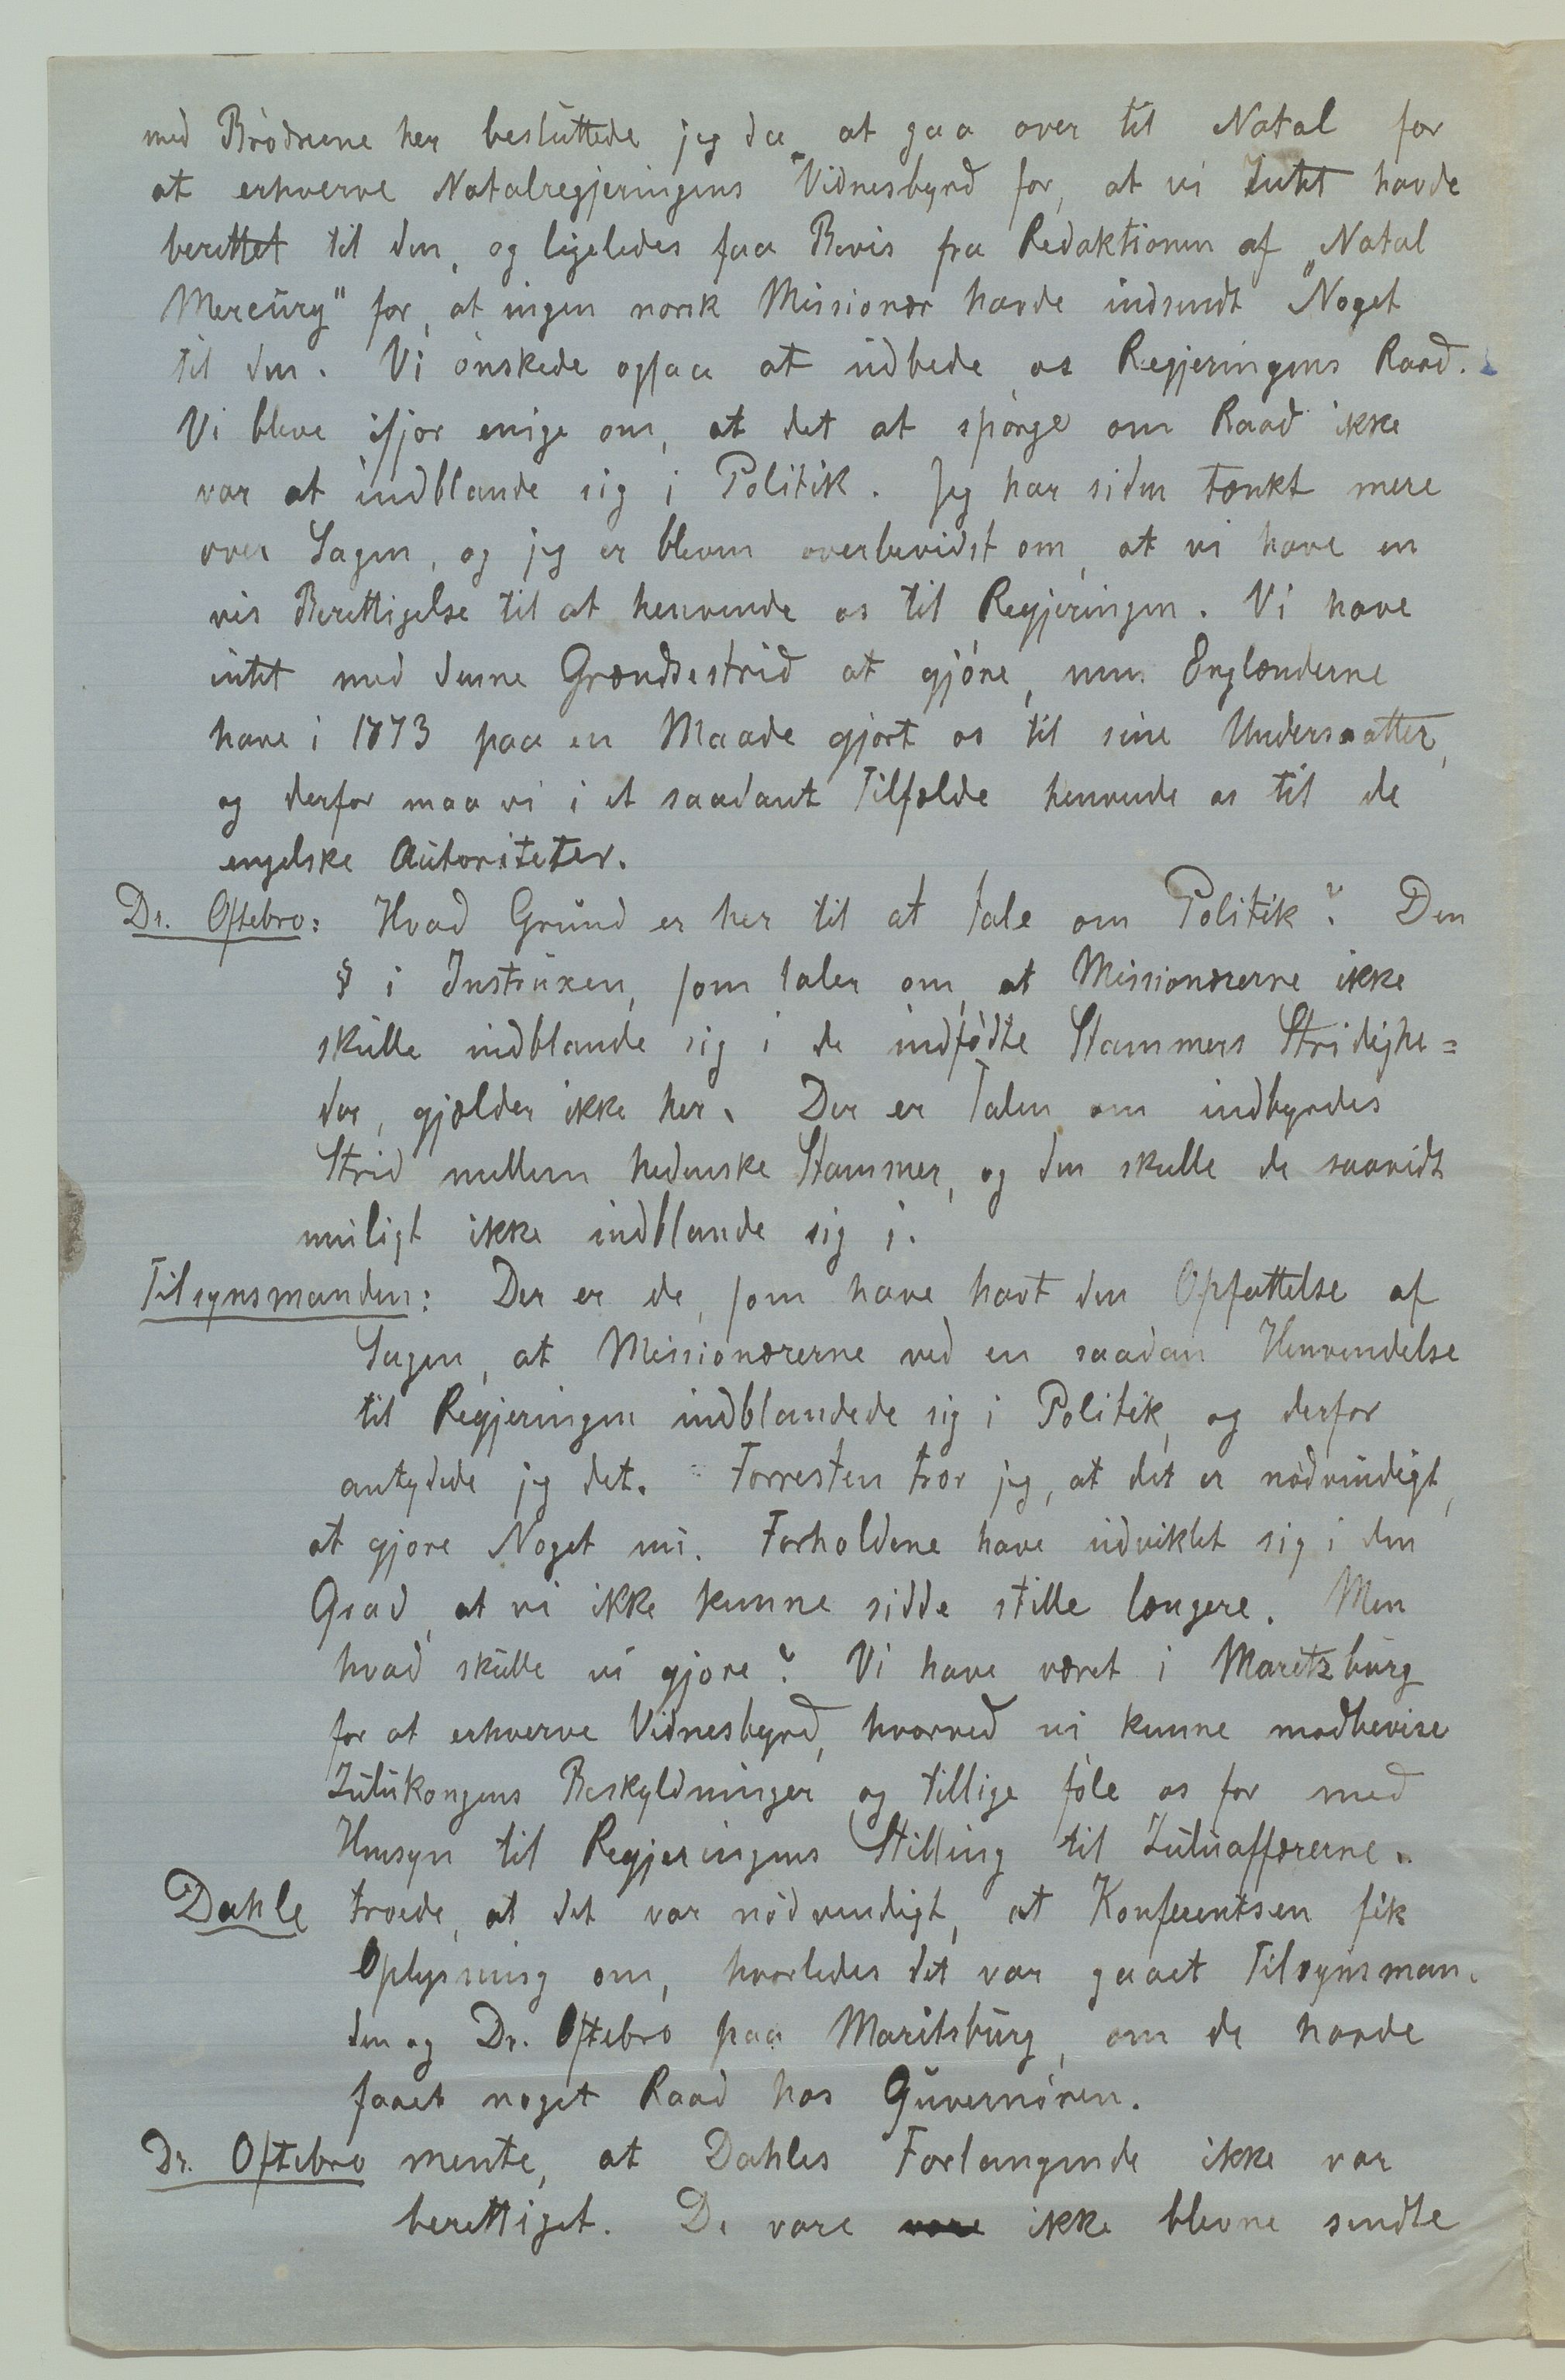 med Brødrene her besluttede jeg da at gaa over til Natal for
at erhverve Natalregjeringens Vidnesbyrd for, at vi Intet havde
berettet til den, og ligeledes faa Bevis fra Redaktionen af „Natal
Mercury" for, at ingen norsk Missionær havde indsendt Noget
til den. Vi ønskede ogsaa at udbede os Regjeringens Raad.
Vi bleve ifjor enige om, at det at spørge om Raad ikke
var at indblande sig i Politik. Jeg har siden tænkt mere
over Sagen, og jeg er bleven overbevidst om, at vi have en
vis Berettigelse til at henvende os til Regjeringen. Vi have
intet med denne Grændsestrid at gjøre, men Englænderne
have i 1873 paa en Maade gjort os til sine Undersaatter,
og derfor maa vi i et saadant Tilfælde henvende os til de
engelske Autoriteter.
Dr. Oftebro: Hvad Grund er her til at tale om Politik? Den
§ i Instruxen, som taler om, at Missionærerne ikke
skulle indblande sig i de indfødte Stammers Stridighe=
der, gjælder ikke her. Der er Talen om indbyrdes
Strid mellem hedenske Stammer, og den skulle de saavidt
muligt ikke indblande sig i.
Tilsynsmanden: Der er de, som have havt den Opfattelse af
Sagen, at Missionærerne ved en saadan Henvendelse
til Regjeringen indblandede sig i Politik, og derfor
antydede jeg det. Forresten tror jeg, at det er nødvendigt,
at gjøre Noget nu. Forholdene have udviklet sig i den
Grad, at vi ikke kunne sidde stille længere. Men
hvad skulle vi gjøre? Vi have været i Maritzburg
for at erhverve Vidnesbyrd, hvorved vi kunne modbevise
Zulukongens Beskyldninger og tillige føle os for med
Hensyn til Regjeringens Stilling til Zuluaffærerne.
Dahle troede, at det var nødvendigt, at Konferentsen fik
Oplysning om, hvorledes det var gaaet Tilsynsman-
den og Dr. Oftebro paa Maritsburg, om de havde
faaet noget Raad hos Guvernøren.
Dr. Oftebro mente, at Dahles Forlangende ikke var
berettiget. De vare vare ikke blevne sendte